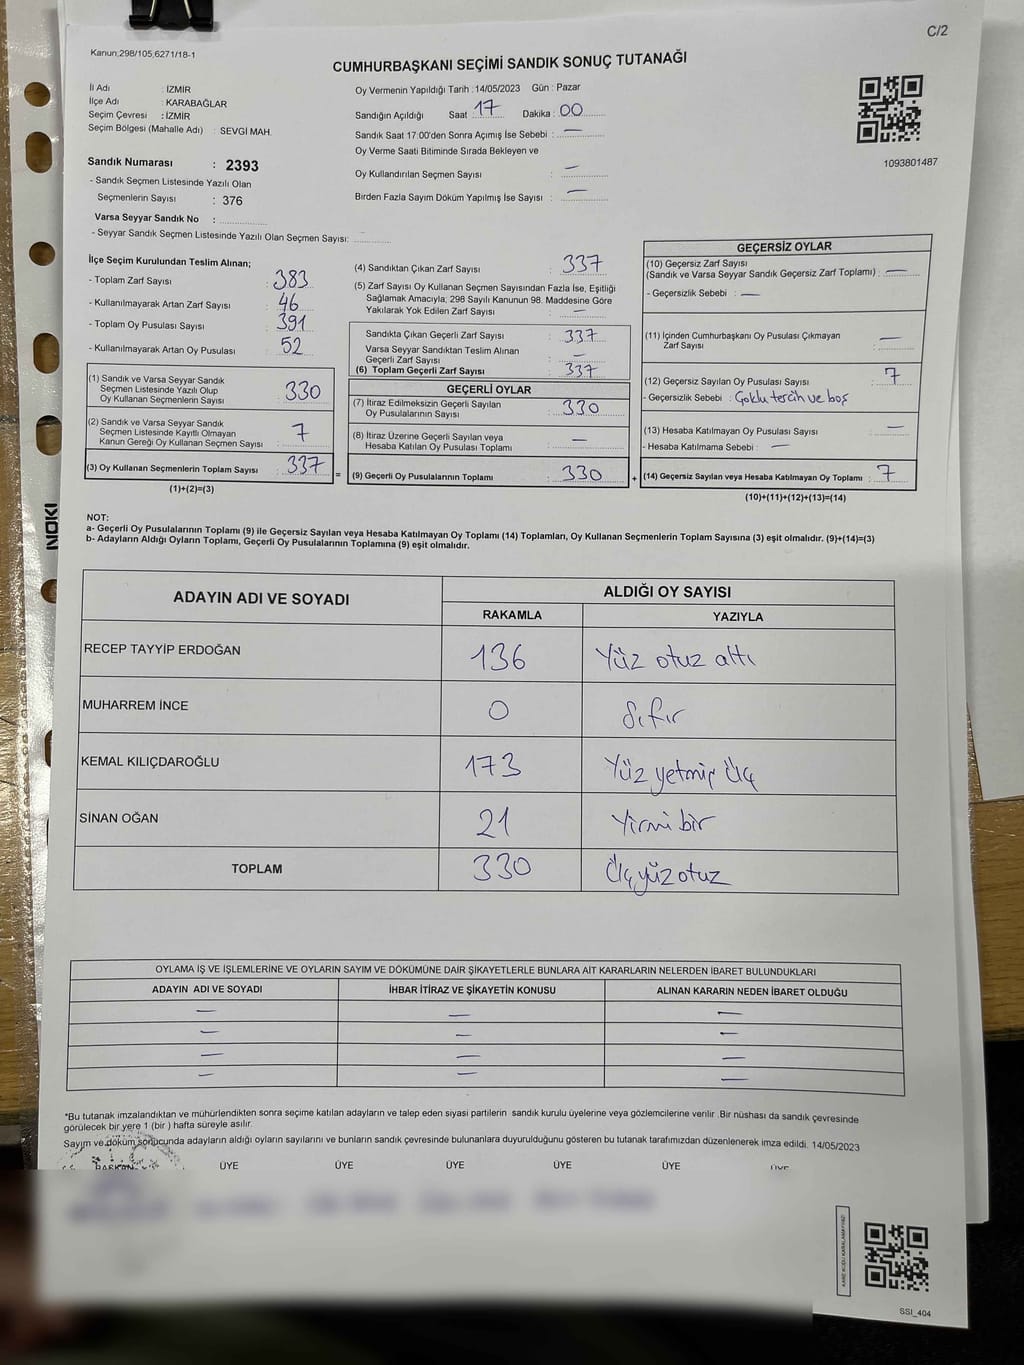 C/2
Kanun,298/105,6271/18-1
CUMHURBAŞKANI SEÇİMİ SANDIK SONUÇ TUTANAĞI
İl Adı : İZMİR
İlçe Adı : KARABAĞLAR
Seçim Çevresi : İZMİR
Seçim Bölgesi (Mahalle Adı) : SEVGİ MAH.
Sandık Numarası : 2393
- Sandık Seçmen Listesinde Yazılı Olan
Seçmenlerin Sayısı : 376
Varsa Seyyar Sandık No :
- Seyyar Sandık Seçmen Listesinde Yazılı Olan Seçmen Sayısı:
Oy Vermenin Yapıldığı Tarih : 14/05/2023 Gün : Pazar
Sandığın Açıldığı Saat 17 Dakika : 00
Sandık Saat 17:00'den Sonra Açımış İse Sebebi : —
Oy Verme Saati Bitiminde Sırada Bekleyen ve
Oy Kullandırılan Seçmen Sayısı : —
Birden Fazla Sayım Döküm Yapılmış İse Sayısı : —
1093801487
İlçe Seçim Kurulundan Teslim Alınan;
- Toplam Zarf Sayısı : 383
- Kullanılmayarak Artan Zarf Sayısı : 46
- Toplam Oy Pusulası Sayısı : 391
- Kullanılmayarak Artan Oy Pusulası : 52
(1) Sandık ve Varsa Seyyar Sandık
Seçmen Listesinde Yazılı Olup
Oy Kullanan Seçmenlerin Sayısı : 330
(2) Sandık ve Varsa Seyyar Sandık
Seçmen Listesinde Kayıtlı Olmayan
Kanun Gereği Oy Kullanan Seçmen Sayısı : 7
(3) Oy Kullanan Seçmenlerin Toplam Sayısı : 337 =
(1)+(2)=(3)
(4) Sandıktan Çıkan Zarf Sayısı : 337
(5) Zarf Sayısı Oy Kullanan Seçmen Sayısından Fazla İse, Eşitliği
Sağlamak Amacıyla; 298 Sayılı Kanunun 98. Maddesine Göre
Yakılarak Yok Edilen Zarf Sayısı : —
Sandıkta Çıkan Geçerli Zarf Sayısı : 337
Varsa Seyyar Sandıktan Teslim Alınan
Geçerli Zarf Sayısı : —
(6) Toplam Geçerli Zarf Sayısı : 337
GEÇERLİ OYLAR
(7) İtiraz Edilmeksizin Geçerli Sayılan
Oy Pusulalarının Sayısı : 330
(8) İtiraz Üzerine Geçerli Sayılan veya
Hesaba Katılan Oy Pusulası Toplamı : —
(9) Geçerli Oy Pusulalarının Toplamı : 330 +
GEÇERSİZ OYLAR
(10) Geçersiz Zarf Sayısı
(Sandık ve Varsa Seyyar Sandık Geçersiz Zarf Toplamı) : —
- Geçersizlik Sebebi : —
(11) İçinden Cumhurbaşkanı Oy Pusulası Çıkmayan
Zarf Sayısı : —
(12) Geçersiz Sayılan Oy Pusulası Sayısı : 7
- Geçersizlik Sebebi : Çoklu tercih ve boş
(13) Hesaba Katılmayan Oy Pusulası Sayısı : —
- Hesaba Katılmama Sebebi : —
(14) Geçersiz Sayılan veya Hesaba Katılmayan Oy Toplamı : 7
(10)+(11)+(12)+(13)=(14)
NOT:
a- Geçerli Oy Pusulalarının Toplamı (9) ile Geçersiz Sayılan veya Hesaba Katılmayan Oy Toplamı (14) Toplamları, Oy Kullanan Seçmenlerin Toplam Sayısına (3) eşit olmalıdır. (9)+(14)=(3)
b- Adayların Aldığı Oyların Toplamı, Geçerli Oy Pusulalarının Toplamına (9) eşit olmalıdır.
ADAYIN ADI VE SOYADI ALDIĞI OY SAYISI
RAKAMLA YAZIYLA
RECEP TAYYİP ERDOĞAN 136 Yüz otuz altı
MUHARREM İNCE 0 Sıfır
KEMAL KILIÇDAROĞLU 173 Yüz yetmiş üç
SİNAN OĞAN 21 Yirmi bir
TOPLAM 330 Üçyüz otuz
OYLAMA İŞ VE İŞLEMLERİNE VE OYLARIN SAYIM VE DÖKÜMÜNE DAİR ŞİKAYETLERLE BUNLARA AİT KARARLARIN NELERDEN İBARET BULUNDUKLARI
ADAYIN ADI VE SOYADI İHBAR İTİRAZ VE ŞİKAYETİN KONUSU ALINAN KARARIN NEDEN İBARET OLDUĞU
— — —
— — —
— — —
— — —
*Bu tutanak imzalandıktan ve mühürlendikten sonra seçime katılan adayların ve talep eden siyasi partilerin sandık kurulu üyelerine veya gözlemcilerine verilir .Bir nüshası da sandık çevresinde
görülecek bir yere 1 (bir ) hafta süreyle asılır.
Sayım ve döküm sonucunda adayların aldığı oyların sayılarını ve bunların sandık çevresinde bulunanlara duyurulduğunu gösteren bu tutanak tarafımızdan düzenlenerek imza edildi. 14/05/2023
BAŞKAN ÜYE ÜYE ÜYE ÜYE ÜYE ÜYE
SSI_404